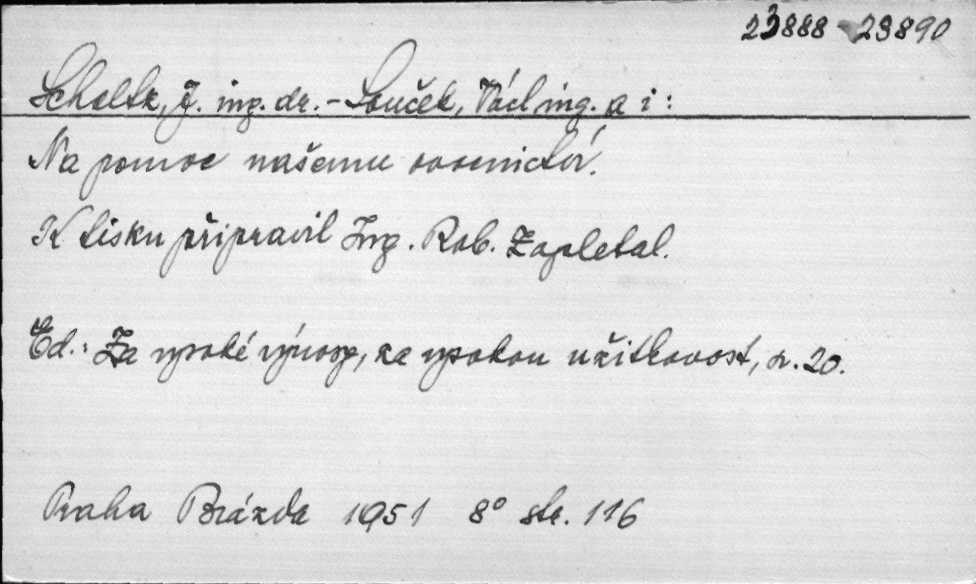 23888-23890
Scholtz, J. ing. dr. - Souček, Václ ing. a i:
Na pomoc našemu ovocnictví.
K tisku připravil Ing. Rob. Zapletal.
Ed.: Za vysoké výnosy, za vysokou užitkovost, sv. 20.
Praha Brázda 1951 8° str. 116